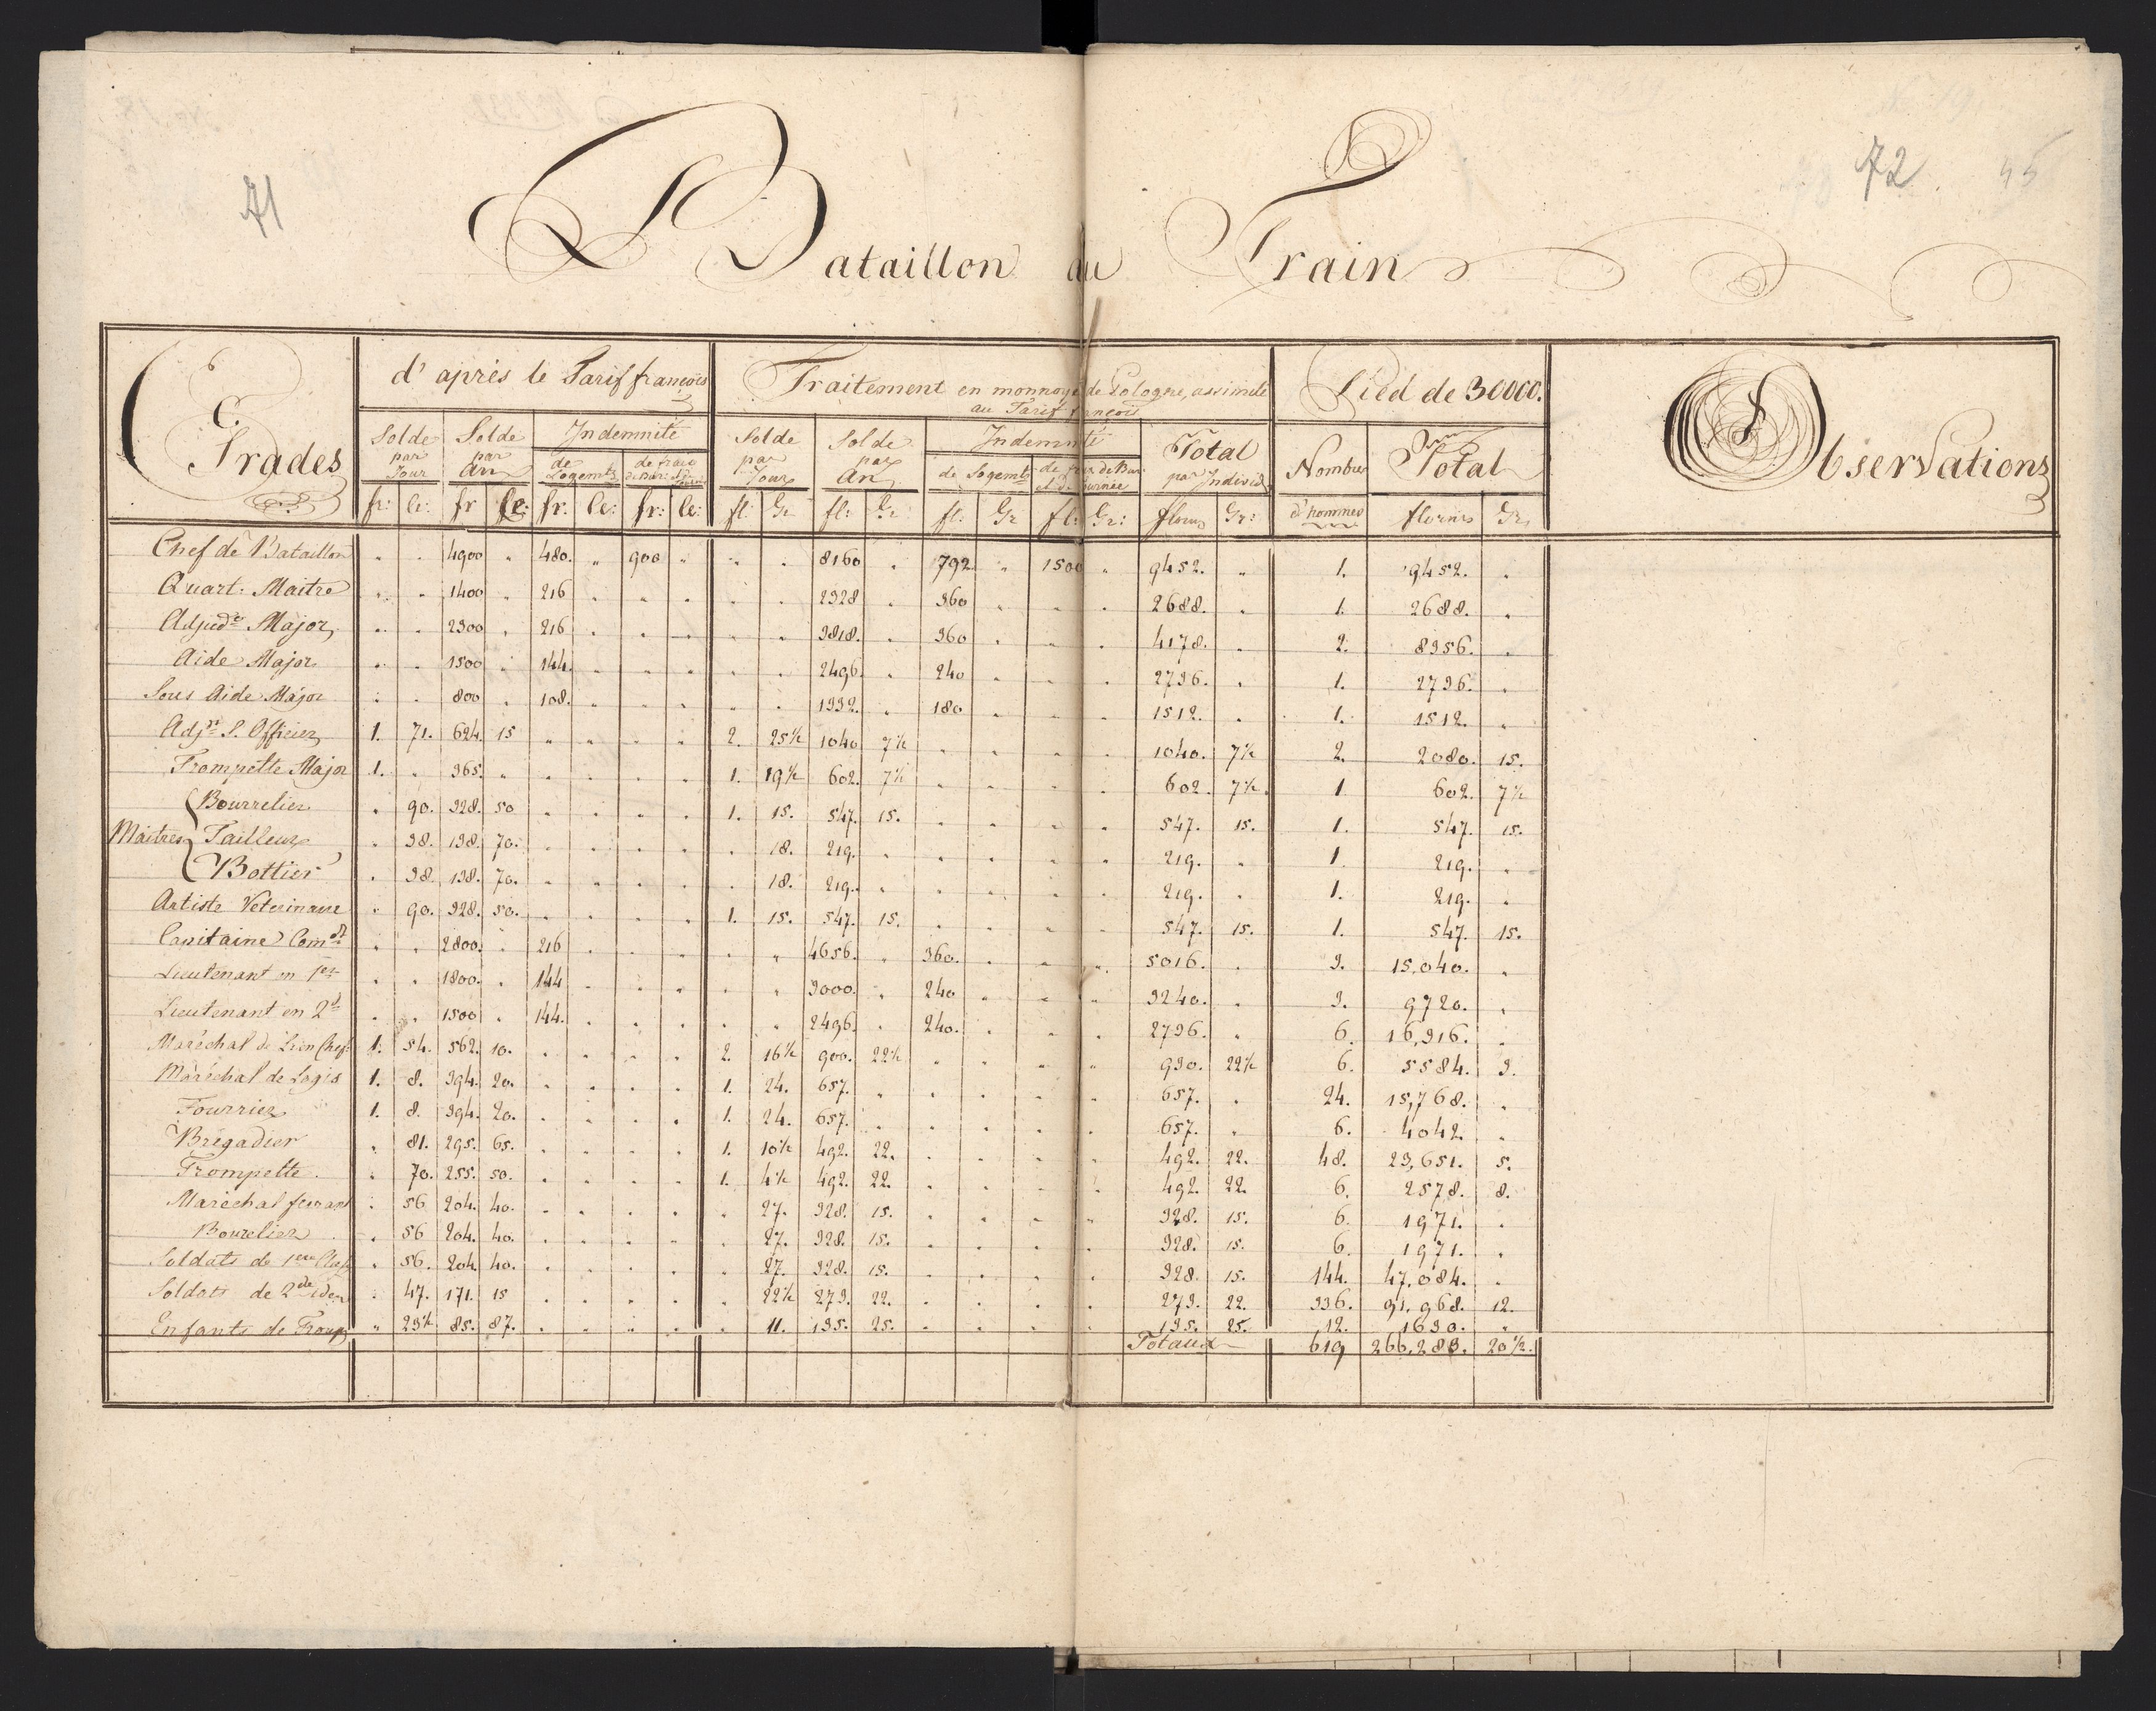 71
72.
45
Bataillon du Train
Grades
d'après le Tarif françois
Traitement en monnoye de Pologne, assimilé
au Tarif françois
Pied de 30000.
Observations
Solde par Jour
Solde par An
Indemnité
de Logemts
de frais de Bur:
Solde par Jour
Solde par An
Indemnité
de Logemts
de frais de Bur: et de Tournée
Total par Individ
Nombre d'hommes
Total
fr: Ce: fr Ce: fr. Ce: fr: Ce: fl: Gr fl: Gr fl: Gr fl: Gr: florins Gr: florins Gr:
Chef de Bataillon " " 4900 " 480. " 900 " " " 8160 " 792 " 1500 " 9452. " 1. 9452. "
Quart: Maitre " " 1400 " 216 " " " " " 2328 " 360 " " " 2688. " 1. 2688. "
Adjudt Major " " 2300 " 216 " " " " " 3818. " 360 " " " 4178. " 2. 8356. "
Aide Major " " 1500 " 144. " " " " " 2496 " 240 " " " 2736. " 1. 2736. "
Sous Aide Major " " 800 " 108. " " " " " 1332. " 180 " " " 1512. " 1. 1512. "
Adjt S. Officier 1. 71. 624. 15 " " " " 2. 25½ 1040 7½ " " " " 1040. 7½ 2. 2080. 15.
Trompette Major 1. " 365. " " " " " 1. 19½ 602. 7½ " " " " 602. 7½ 1 602. 7½
Maitres { Bourrelier " 90. 328. 50 " " " " 1. 15. 547. 15. " " " " 547. 15. 1. 547. 15.
Tailleur " 38. 138. 70. " " " " " 18. 219. " " " " " 219. " 1 219. "
Bottier " 38. 138. 70. " " " " " 18. 219. " " " " " 219. " 1. 219. "
Artiste Veterinaire " 90. 328. 50. " " " " 1. 15. 547. 15. " " " " 547. 15. 1. 547. 15.
Capitaine Comdt " " 2800. " 216 " " " " " 4656. " 360. " " " 5016. " 3. 15,040. "
Lieutenant en 1er " " 1800. " 144 " " " " " 3000. " 240 " " " 3240. " 3. 9720. "
Lieutenant en 2d " " 1500 " 144. " " " " " 2496. " 240. " " " 2736. " 6. 16,316. "
Maréchal de Chef 1. 54. 562. 10. " " " " 2. 16½ 900. 22½ " " " " 930. 22½ 6. 5584. 3.
Maréchal de Logis 1. 8. 394. 20. " " " " 1. 24. 657. " " " " " 657. " 24. 15,768. "
Fourrier 1. 8. 394. 20. " " " " 1. 24. 657. " " " " " 657. " 6. 4042. "
Brigadier " 81. 295. 65. " " " " 1. 10½ 492. 22. " " " " 492. 22. 48. 23,651. 5.
Trompette. " 70. 255. 50. " " " " 1. 4½ 492. 22. " " " " 492. 22. 6. 2578. 8.
Maréchal ferrant " 56 204. 40. " " " " " 27. 328. 15. " " " " 328. 15. 6. 1971. "
Bourelier " 56 204. 40. " " " " " 27. 328. 15. " " " " 328. 15. 6. 1971. "
Soldats de 1ere Class " 56. 204. 40. " " " " " 27. 328. 15. " " " " 328. 15. 144. 47,084. "
Soldats de 2de idem " 47. 171. 15 " " " " " 22½ 273. 22. " " " " 273. 22. 336. 91,968. 12.
Enfants de Troupe " 23½ 85. 87. " " " " " 11. 135. 25. " " " " 135. 25. 12. 1630. "
Totaux 619 266,283. 20½.